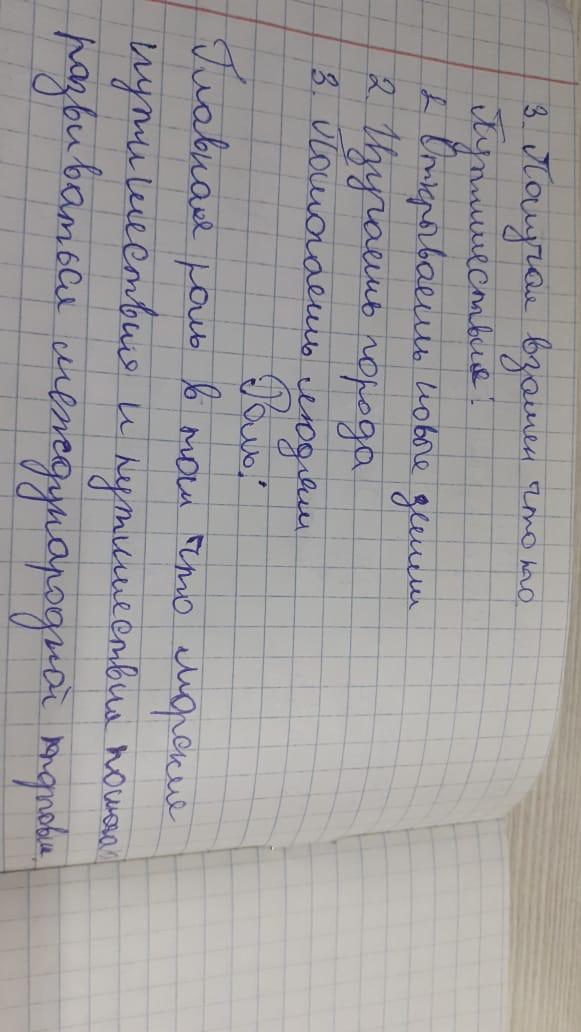 3. Получая взамен что то
Путишествия:
1 Открываешь новые земли
2 Изучаешь города
3. Помогаешь людям
Роль:
Главная роль в том что морские
путишествия и путишествия помогаю
развиваться международной торговли